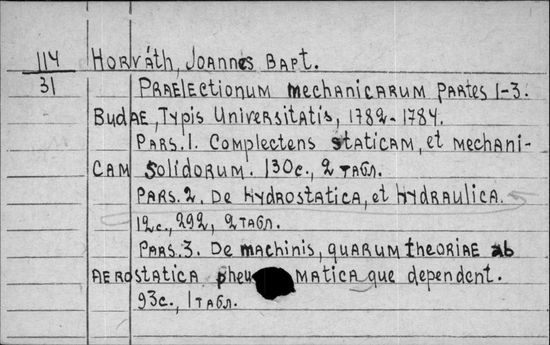 114 Horváth, Joannes Bapt.
31 Praelectionum mechanicarum partes 1-3.
Budae, Typis Universitatis, 1782-1784.
Pars. 1. Complectens staticam, et mechani-
cam solidorum. 130c., 2 табл.
Pars. 2. De hydrostatica, et hydraulica.
12c., 292, 2 табл.
Pars. 3. De machinis, quarum theoriae ab
aerostatica pheu matica que dependent.
93c., 1 табл.